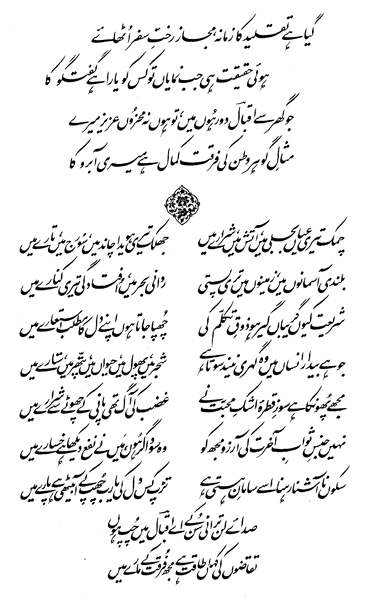 گیا ہے تقلید کا زمانہ مجاز رختِ سفر اٹھائے
ہوئی حقیقت ہی جب نمایاں تو کس کو یارا ہے گفتگو کا
جو گھر سے اقبالؔ دور ہوں میں تو ہوں نہ محزوں عزیز میرے
مثالِ گوہر وطن کی فرقت کمال ہے میری آبرو کا
چمک تیری عیاں بجلی میں آتش میں شرارے میں جھلک تیری ہویدا چاند میں سورج میں تارے میں
بلندی آسمانوں میں زمینوں میں تری پستی روانی بحر میں افتادگی تیری کنارے میں
شریعت کیوں گریباں گیر ہو ذوقِ تکلم کی چھپا جاتا ہوں اپنے دل کا مطلب استعارے میں
جو ہے بیدار انساں میں وہ گہری نیند سوتا ہے شجر میں پھول میں حیواں میں پتھر میں ستارے میں
مجھے پھونکا ہے سوزِ قطرۂ اشکِ محبت نے غضب کی آگ تھی پانی کے چھوٹے سے شرارے میں
نہیں جنسِ ثوابِ آخرت کی آرزو مجھ کو وہ سوداگر ہوں میں نے نفع دیکھا ہے خسارے میں
سکوں ناآشنا رہنا اسے سامانِ ہستی ہے تڑپ کس دل کی یا رب چھپ کے آ بیٹھی ہے پارے میں
صدائے لن ترانی سن کے اے اقبالؔ میں چپ ہوں
تقاضوں کی کہاں طاقت ہے مجھ فرقت کے مارے میں